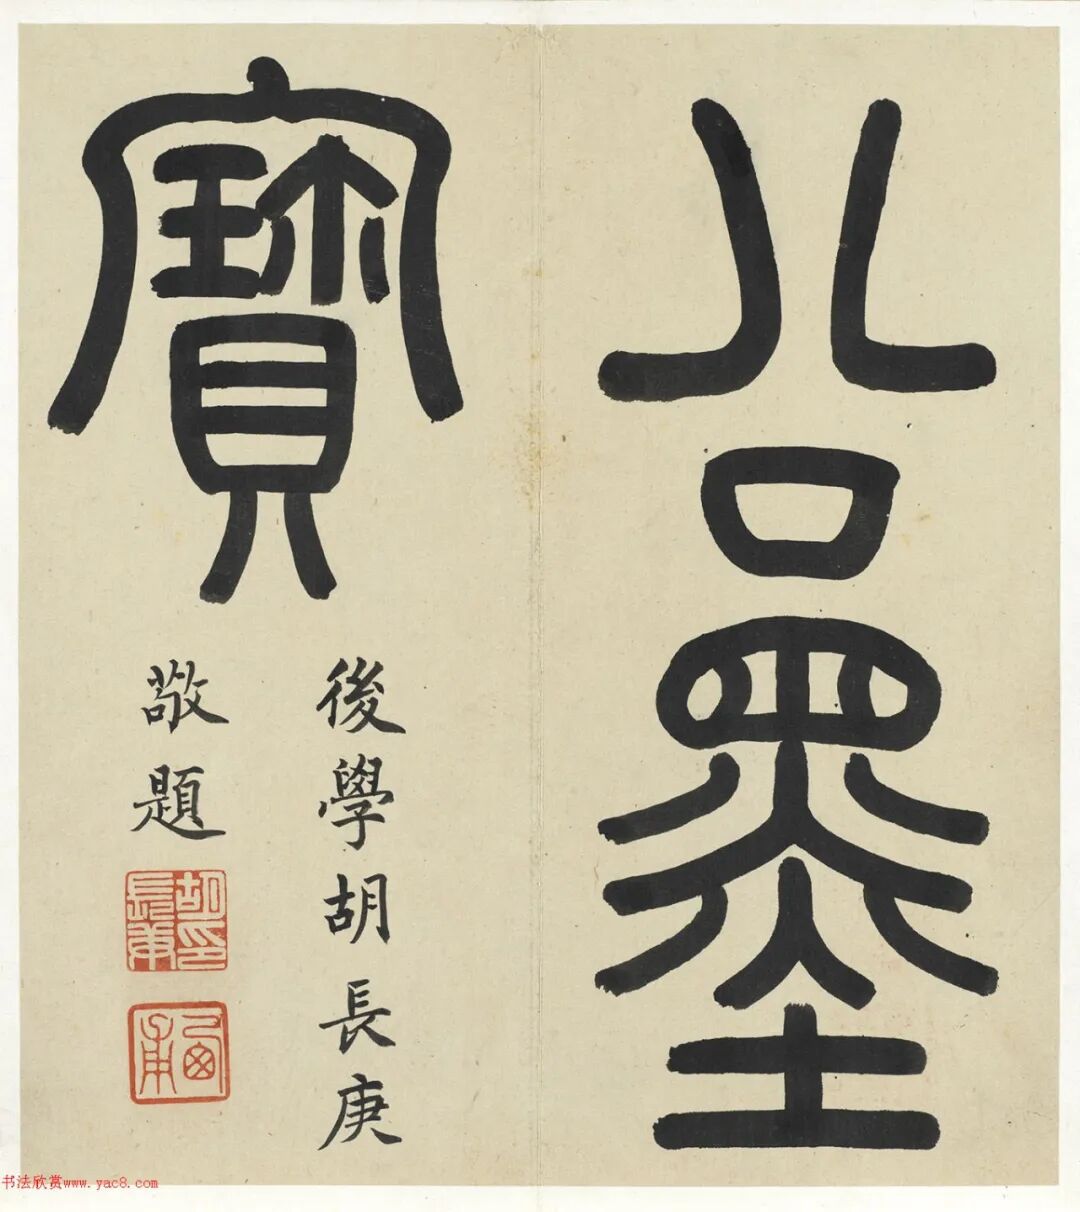 公墨
寶
後學胡長庚
敬題
胡印長庚
西甫
书法欣赏www.yac8.com